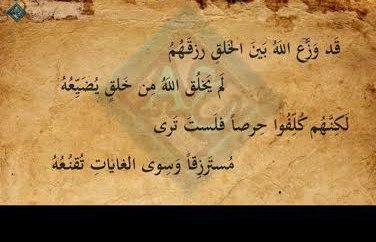 قَد وَزَّعَ اللهُ بَينَ الخَلقِ رِزقَهُمُ
لَم يَخلُق اللهُ مِن خَلقٍ يُضَيِّعُهُ
لَكِنَّهُم كُلِّفُوا حرصاً فلَستَ تَرى
مُستَرزِقاً وَسِوى الغاياتِ تُقنِعُهُ